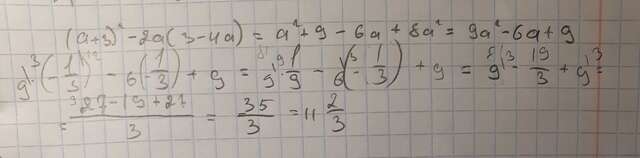 (a+3)² - 2a(3-4a) = a²+9 - 6a + 8a² = 9a²-6a+9
9\³·(-1/3)² - 6(-1/3) + 9 = 9·1/9 - 6\³(-1/3) + 9 = 9\³ - 19/3 + 9\³ =
= (27-19+27)/3 = 35/3 = 11 2/3